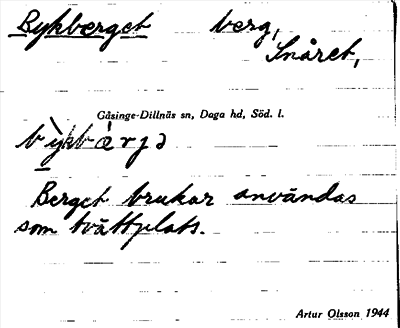 Bykberget berg,
Snåret,
Gåsinge-Dillnäs sn, Daga hd, Söd. l.
Berget brukar användas
som tvättplats.
Artur Olsson 1944